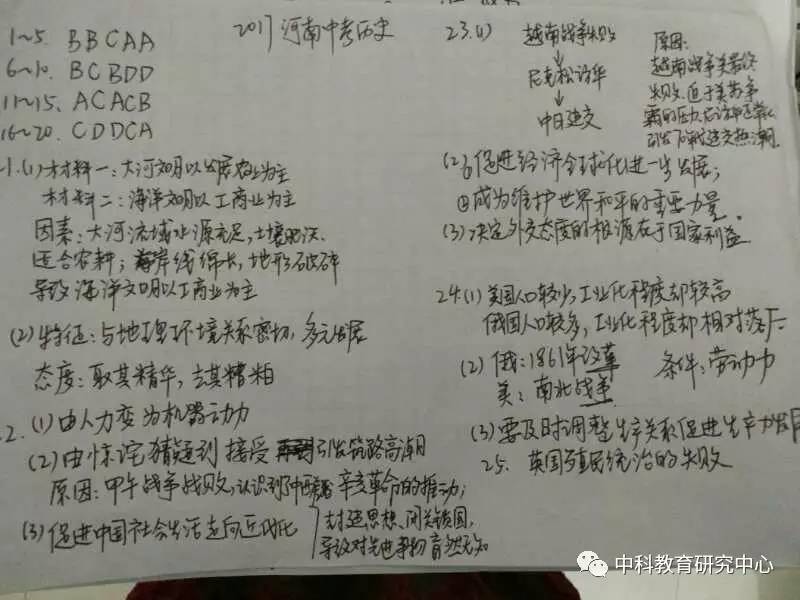 2017 河南中考历史
1~5. BBCAA
6~10. BCBDD
11~15. ACACB
16~20. CDDCA
1.(1)材料一:大河文明以发展农业为主
材料二:海洋文明以工商业为主
因素:大河流域水源充足,土壤肥沃
适合农耕;海岸线绵长,地形破碎
导致海洋文明以工商业为主
(2)特征:与地理环境关系密切,多元发展
态度:取其精华,去其糟粕
2.(1)由人力变为机器动力
(2)由惊诧猜疑到接受 引发筑路高潮
原因:甲午战争战败,认识到 辛亥革命的推动;
封建思想、闭关锁国,
导致对先进事物盲然无知
(3)促进中国社会生活走向近代化
23.(1) 越南战争失败
↓
尼克松访华
↓
中日建交
原因:
越南战争美最终
失败,迫于美苏争
霸的压力
(2)①促进经济全球化进一步发展;
②成为维护世界和平的重要力量
(3)决定外交态度的根源在于国家利益
24.(1)美国人口较少,工业化程度却较高
俄国人口较多,工业化程度却相对落后
(2)俄:1861年改革 条件:劳动力
美:南北战争
(3)要及时调整生产关系促进生产力发展
25. 英国殖民统治的失败
中科教育研究中心